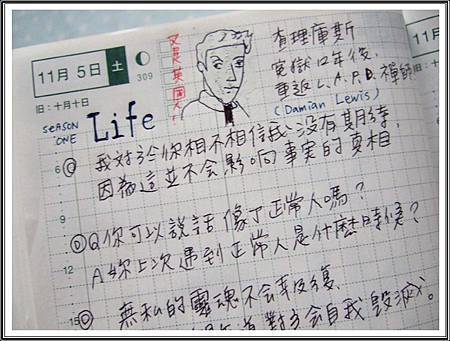 11月 5日 土
309
旧：十月十日
又是英國人!
查理庫斯
冤獄12年後,
重返L.A.P.D.禪師
(Damian Lewis)
SEASON ONE
Life
6
我對於你相不相信我沒有期待,
因為這並不会影响事实的真相
Q你可以說話像个正常人嗎?
12
A妳上次遇到正常人是什麼時候?
15
無私的靈魂不会
会自我毀滅。
11月
旧：